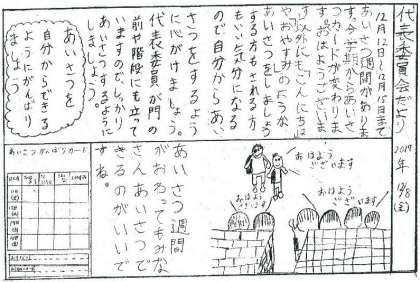 代表委員会だより
2017年 12/8(金)
12月12日〜12月15日まで
あいさつ週間がありま
す。今学期からあいさ
つカードが変わりま
す。おはようございま
す以外にもこんにちは
やおやすみのような
あいさつをしましょう
する方もされる方も
いい気分になる
ので自分からあい
さつをするよう
に心がけましょう。
代表委員が門の
前や階段にも立て
いますので、しっかり
あいさつするように
しましょう。
あいさつを
自分からできる
ようにがんばり
ましょう
おはよう
ございます
おはよう
ございます
おはよう
ございます
おはよう
ございます
あいさつ週間
がおわってもみな
さんあいさつで
きるのがいいで
すね。
あいさつがんばりカード